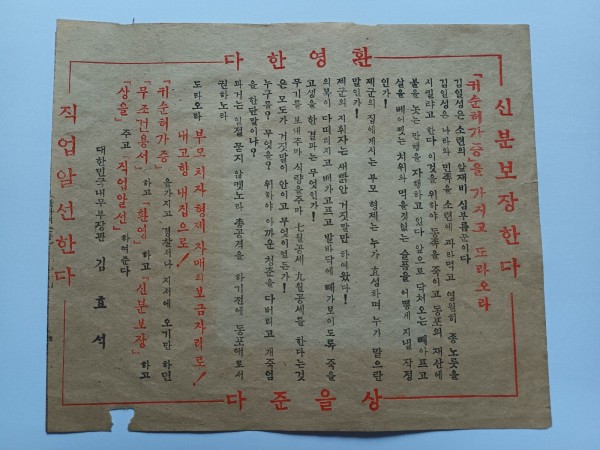 환영한다
신분보장한다
「귀순허가증」을 가지고 도라오라
김일성은 소련의 앞재비 심부름꾼이다
김일성은 나라와 민족을 소련에 파라먹고 영원히 종노릇을
시킬랴고 한다 이것을 위하야 동족을 죽이고 동포의 재산에
불을 놋는 만행을 자행하고 있다 앞으로 닥처오는 뼈아프고
살을 베어찟는 치위와 먹을것없는 슬픔을 어떻게 지낼 작정
인가!
제군의 집에게시는 부모 형제는 누가 효성하며 누가 믿으란
말인가!
제군의 지휘자는 새빩안 거짓말만 하여왔다!
의복이 다떠러지고 배가고프고 발바닥에 뼈가보이도록 죽을
고생을 한 결과는 무엇인가!
무기를 보내주마 식량을주마 七월공세 九월공세를 한다는것
은 모도가 거짓말이 안이고 무엇이였든가!
누구를? 무엇을? 위하야 아까운 청춘을 다버리고 개죽엄
을 한단말이냐?
과거는 일절 묻지 않겟노라 총공격을 하기전에 동포애로서
권하노라
도라오라
부모처자 형제 자매의 보금자리로!
내고향 내집으로!
「귀순허가증」을가지고 경찰서나 지서에 오기만 하면
「무조건용서」하고 「환영」하고 「신분보장」하고
「상을」주고 「직업알선」하여준다
대한민국내무부장관 김효석
직업알선한다
상을준다